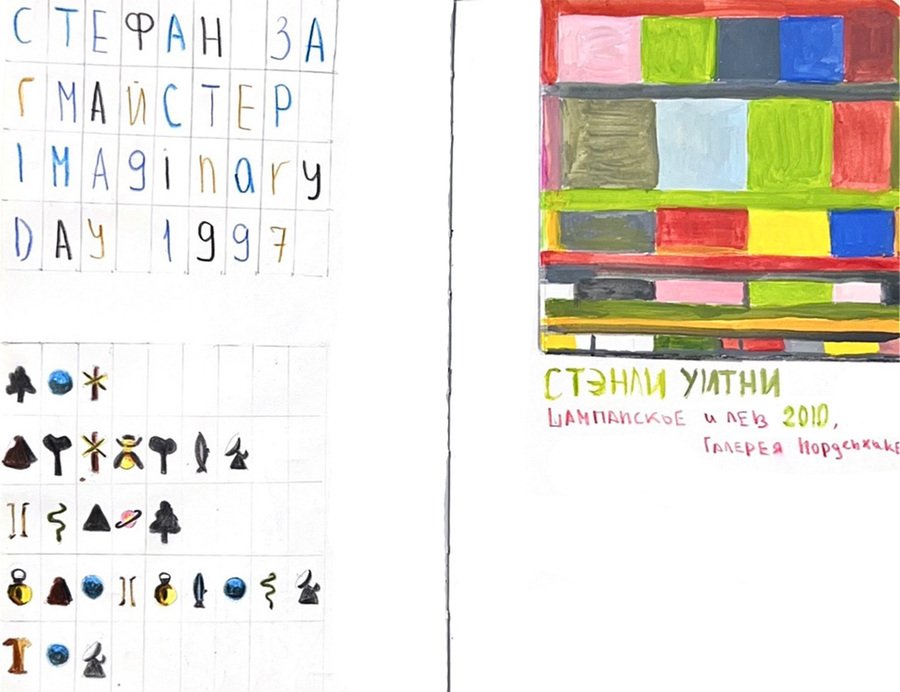 СТЕФАН ЗА
ГМАЙСТЕР
IMAginary
DAY 1997
СТЭНЛИ УИТНИ
ШАМПАНСКОЕ и ЛЕВ 2010,
ГАЛЕРЕЯ Норденхаке